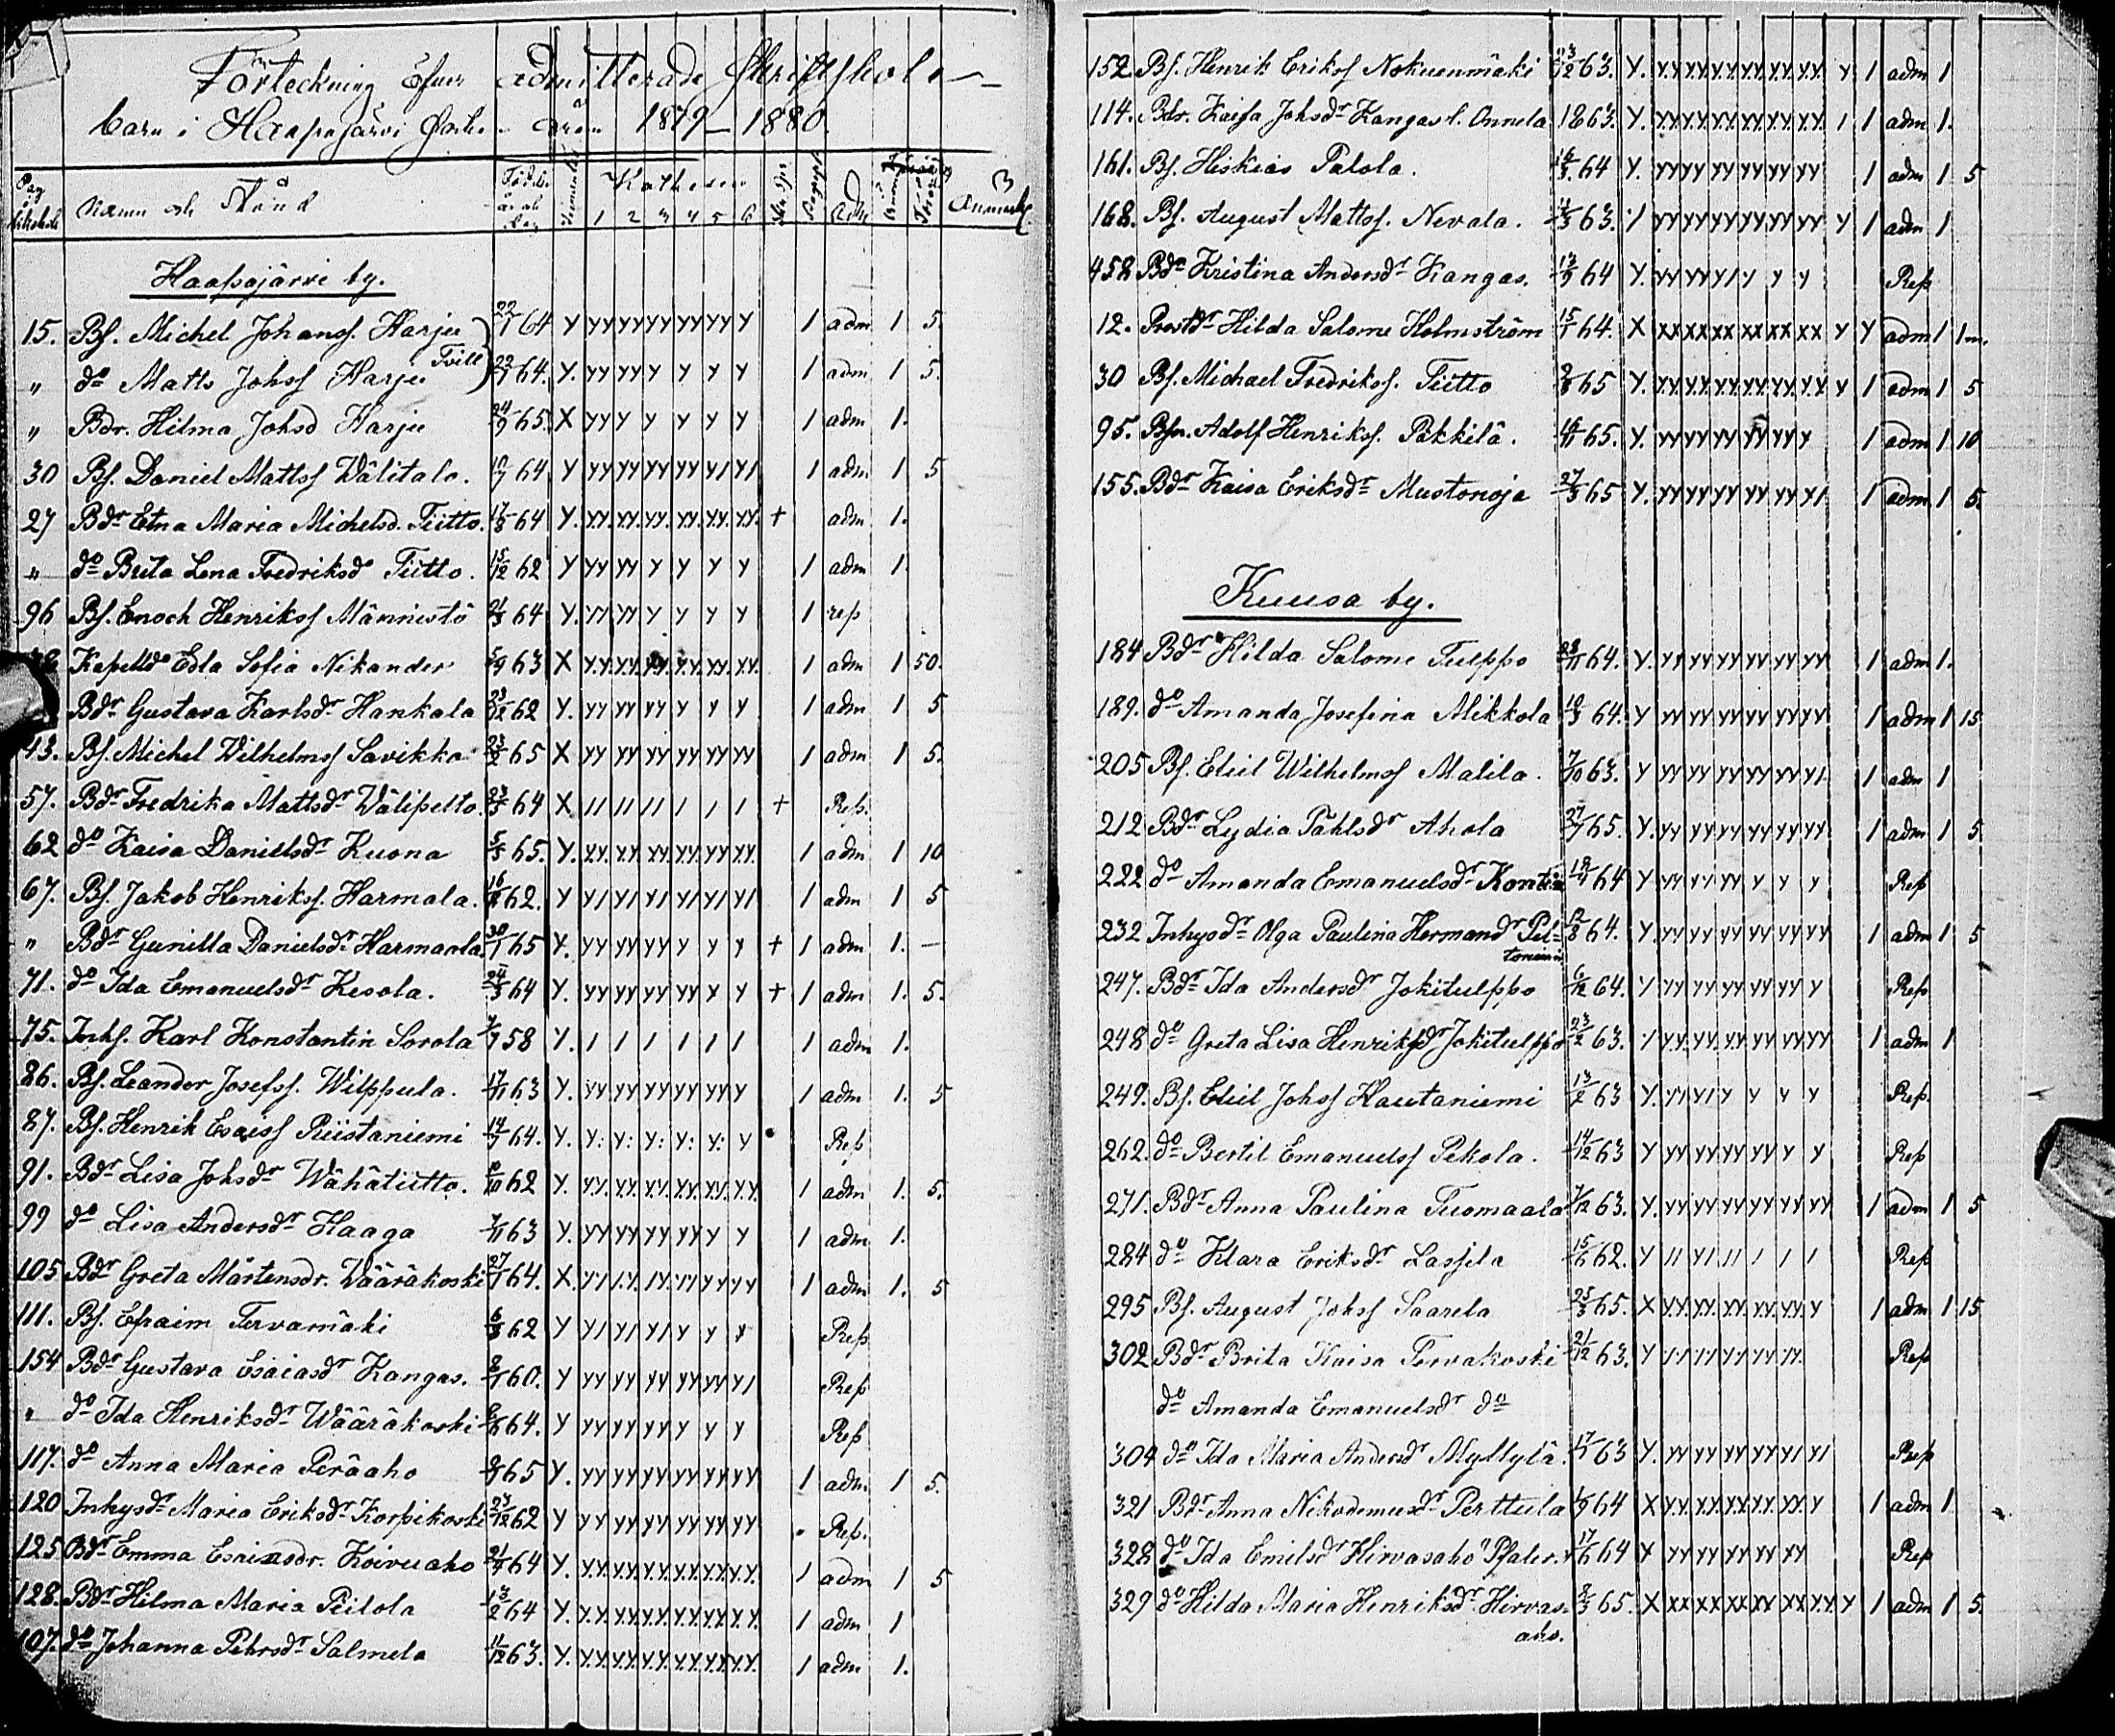 Förteckning öfver admitterade Skriftskole-
barn i Haapajärvi Socken åren 1879-1880.
Pag Namn och Stånd Födelse år och dag Innanläs Kathesen Adm Anmärk
1 2 3 4 5 6
Haapajärvi by.
15. Bs. Michel Johanss. Harju 22/1 64 Y YY YY YY YY YY Y 1 adm 1 5.
Tvill
" do Matts Johss Harju 22/1 64. Y. YY YY Y Y Y Y 1 adm 1 5.
" Bdr. Hilma Johsd Harju 24/9 65. X YY Y Y Y Y Y 1 adm 1.
30 Bs. Daniel Mattss Wälitalo. 19/7 64 Y YY YY YY YY Y/ Y/ 1 adm 1 5
27 Bdr Etna Maria Michelsd. Tiitto. 17/8 64 Y. YY. YY. YY. YY. YY. YY. + adm 1.
" do Brita Lena Fredriksdr Tiitto. 15/12 62 Y YY YY Y Y Y Y 1 adm 1.
96 Bs. Enoch Henrikss Männistö 21/3 64 Y. YY YY Y Y Y Y 1 rep
Kapelldr Edla Sofia Nikander 5/9 63 X YY. YY. YY. YY. YY. YY. 1 adm 1 50.
Bdr Gustava Karlsdr Hankala 23/12 62 Y. YY YY YY Y Y Y 1 adm 1 5
43. Bs. Michel Wilhelmss Savikko 23/2 65 X YY YY YY YY YY YY 1 adm 1 5.
57. Bdr Fredrika Mattsdr Wälipelto. 23/3 64 X // // // / / / + Rep.
62 do Kaisa Danielsdr Kuona 5/5 65. Y. YY. YY YY. YY. YY YY. 1 adm 1 10
67. Bs. Jakob Henrikss. Harmala. 62. Y Y/ Y/ Y/ Y/ Y/ Y/ 1 adm 1 5
" Bdr Gunilla Danielsdr Harmaala. 30/1 65 Y. YY YY YY Y Y Y + 1 adm 1. —
71. do Ida Emanuelsdr Kesola. 24/3 64 Y. YY YY YY YY Y Y + 1 adm 1. 5.
75. Inhs. Karl Konstantin Sorola 7/7 58 Y. / / / / / / 1 adm 1.
86. Bs. Leander Josefss. Wilppula. 17/11 63 Y. YY YY YY YY YY Y 1 adm 1. 5
87. Bs. Henrik Esaiss Riistaniemi 14/7 64. Y. Y: Y: Y: Y: Y: Y Rep
91. Bdr Lisa Johsdr Wähätiitto. 10/10 62 Y. YY. YY. YY. YY. YY. YY. 1 adm 1. 5.
99 do Lisa Andersdr Haaga 7/11 63 Y. YY YY YY YY Y Y 1 adm 1.
105 Bdr Greta Mårtensdr. Wääräkoski 27/1 64. X. YY /Y. /Y. YY YY YY 1 adm 1. 5
111. Bs. Efraim Tervamäki 6/3 62 Y Y/ Y/ Y/ Y Y Y Rep
154 Bdr Gustava Esaiasdr Kangas. 8/1 60. Y YY YY YY YY YY Y/ Rep
" do Ida Henriksdr Wääräkoski 64. Y YY YY YY Y Y Y Rep
117. do Anna Maria Peräaho 65 Y. YY YY YY YY YY YY 1 adm 1 5.
120 Inhysdr Maria Eriksdr Korpikoski 23/12 62 Y YY YY YY YY YY YY Rep.
125. Bdr Emma Esaiasdr. Koivuaho 21/9 64 Y. YY. YY. YY. YY. YY. YY. 1 adm 1 5
128. Bdr Hilma Maria Peilola 13/2 64 Y. YY. YY. YY. YY. YY. YY. 1 adm 1
107. do Johanna Pehrsdr Salmela 11/12 63. Y. YY. YY. YY. YY. YY. YY. 1 adm 1.
152. Bs. Henrik Erikss Nokuenmäki 23/12 63. Y. YY. YY. YY. YY. YY. YY. Y 1 adm 1
114. Bdr. Kaisa Johsdr Kangas l. Onnela 1863. Y. YY. YY. YY. YY. YY. YY. 1 1 adm 1.
161. Bs. Hiskias Palola. 64 Y. YY YY YY YY YY YY 1 adm 1 5
168. Bs. August Mattss. Nevala. 63. Y YY YY YY YY YY YY Y 1 adm 1
458 Bdr Kristina Andersdr Kangas. 13/9 64 Y. YY YY Y/ Y Y Y Rep
12. Prostdr Hilda Salome Holmström 15/1 64. X XX XX XX XX XX XX Y Y adm 1 1m.
30 Bs. Michael Fredrikss. Tiitto 65 Y. YY. YY. YY. YY. YY. YY. Y 1 adm 1 5
95. Bsn. Adolf Henrikss. Päkkilä. 65. Y. YY YY YY YY YY Y 1 adm 1 10
155. Bdr Kaisa Eriksdr Mustonoja 27/3 65 Y. YY YY YY YY YY Y/ 1 adm 1 5.
Kuusa by.
184 Bdr Hilda Salome Tulppo 28/11 64. Y. YY YY YY YY YY YY 1 adm 1.
189. do Amanda Josefina Mikkola 19/3 64. Y YY YY YY YY YY YY 1 adm 1 15
205 Bs. Eliel Wilhelmss Malila. 7/10 63. Y YY YY YY YY YY Y/ 1 adm 1
212 Bdr Lydia Pahlsdr Ahola 27/7 65. Y. YY YY YY YY YY YY 1 adm 1 5.
222 do Amanda Emanuelsdr Kontio 64 Y YY YY YY Y Y Y Rep
232 Inhysdr Olga Paulina Hermandr Pel- 12/8 64. Y. YY YY YY YY YY YY 1 adm 1 5
toniemi
247. Bdr Ida Andersdr Jokitulppo 6/12 64. Y YY YY YY YY YY Y Rep
248 do Greta Lisa Henriksdr Jokitulppo 23/2 63. Y YY. YY. YY YY YY YY 1 adm 1
249. Bs. Eliel Johss Hautaniemi 13/2 63 Y. Y/ Y/ Y Y Y Y Rep.
262. do Bertil Emanuelss Pekola. 14/12 63 Y YY YY YY YY Y Y Rep
271. Bdr Anna Paulina Tuomaala 7/12 63. Y. YY YY YY YY YY YY 1 adm 1 5
284 do Klara Eriksdr Lassila 15/6 62. Y // Y/ // / / / Rep
295 Bs. August Johss Saarela 25/3 65. X YY. YY. YY. YY. YY. Y 1 adm 1 15
302 Bdr Brita Kaisa Tervakoski 21/12 63. Y YY YY YY YY YY. Rep
do Amanda Emanuelsdr do
304 do Ida Maria Andersdr Myllylä. 17/7 63 Y. YY YY YY YY Y/ Y/ Rep
321 Bdr Anna Nikodemusdr Perttula 64 X YY. XX. XX. XX. XX. Y 1 adm 1
328 do Ida Emilsdr Hirvasaho "Pfaler. 17/6 64 Y YY YY YY YY YY Rep
329 do Hilda Maria Henriksdr Hirvas- 8/3 65. X XX XX XX XX XX YY Y 1 adm 1 5.
aho.